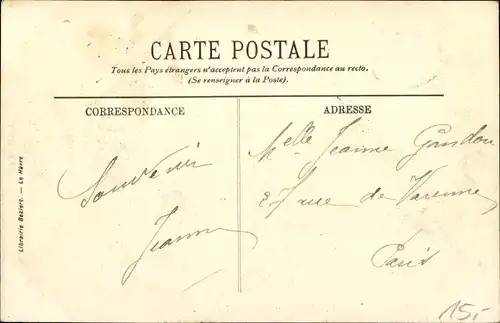 CARTE POSTALE
Tous les Pays étrangers n'acceptent pas la Correspondance au recto.
(Se renseigner à la Poste).
CORRESPONDANCE
ADRESSE
Souvenir
Jeanne
Melle Jeanne Gandon
27 rue de Varenne
Paris
Librairie Béziers. — Le Havre
15,-